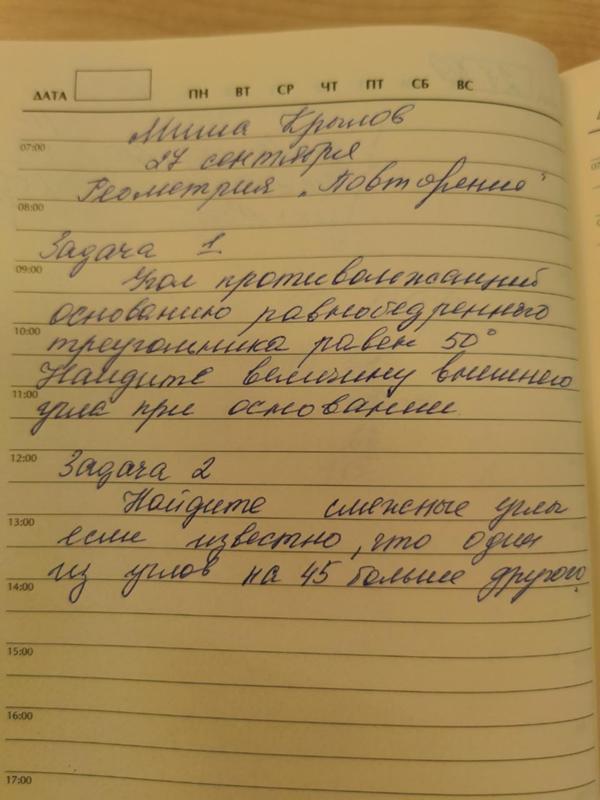 ДАТА ПН ВТ СР ЧТ ПТ СБ ВС
Миша Крылов
07:00
27 сентября
Геометрия „Повторение"
08:00
Задача 1
09:00
Угол противолежащий
основанию равнобедренного
10:00
треугольника равен 50°
Найдите величину внешнего
11:00
угла при основании
12:00
Задача 2
Найдите смежные углы
13:00
если известно, что один
из углов на 45 больше другого.
14:00
15:00
16:00
17:00